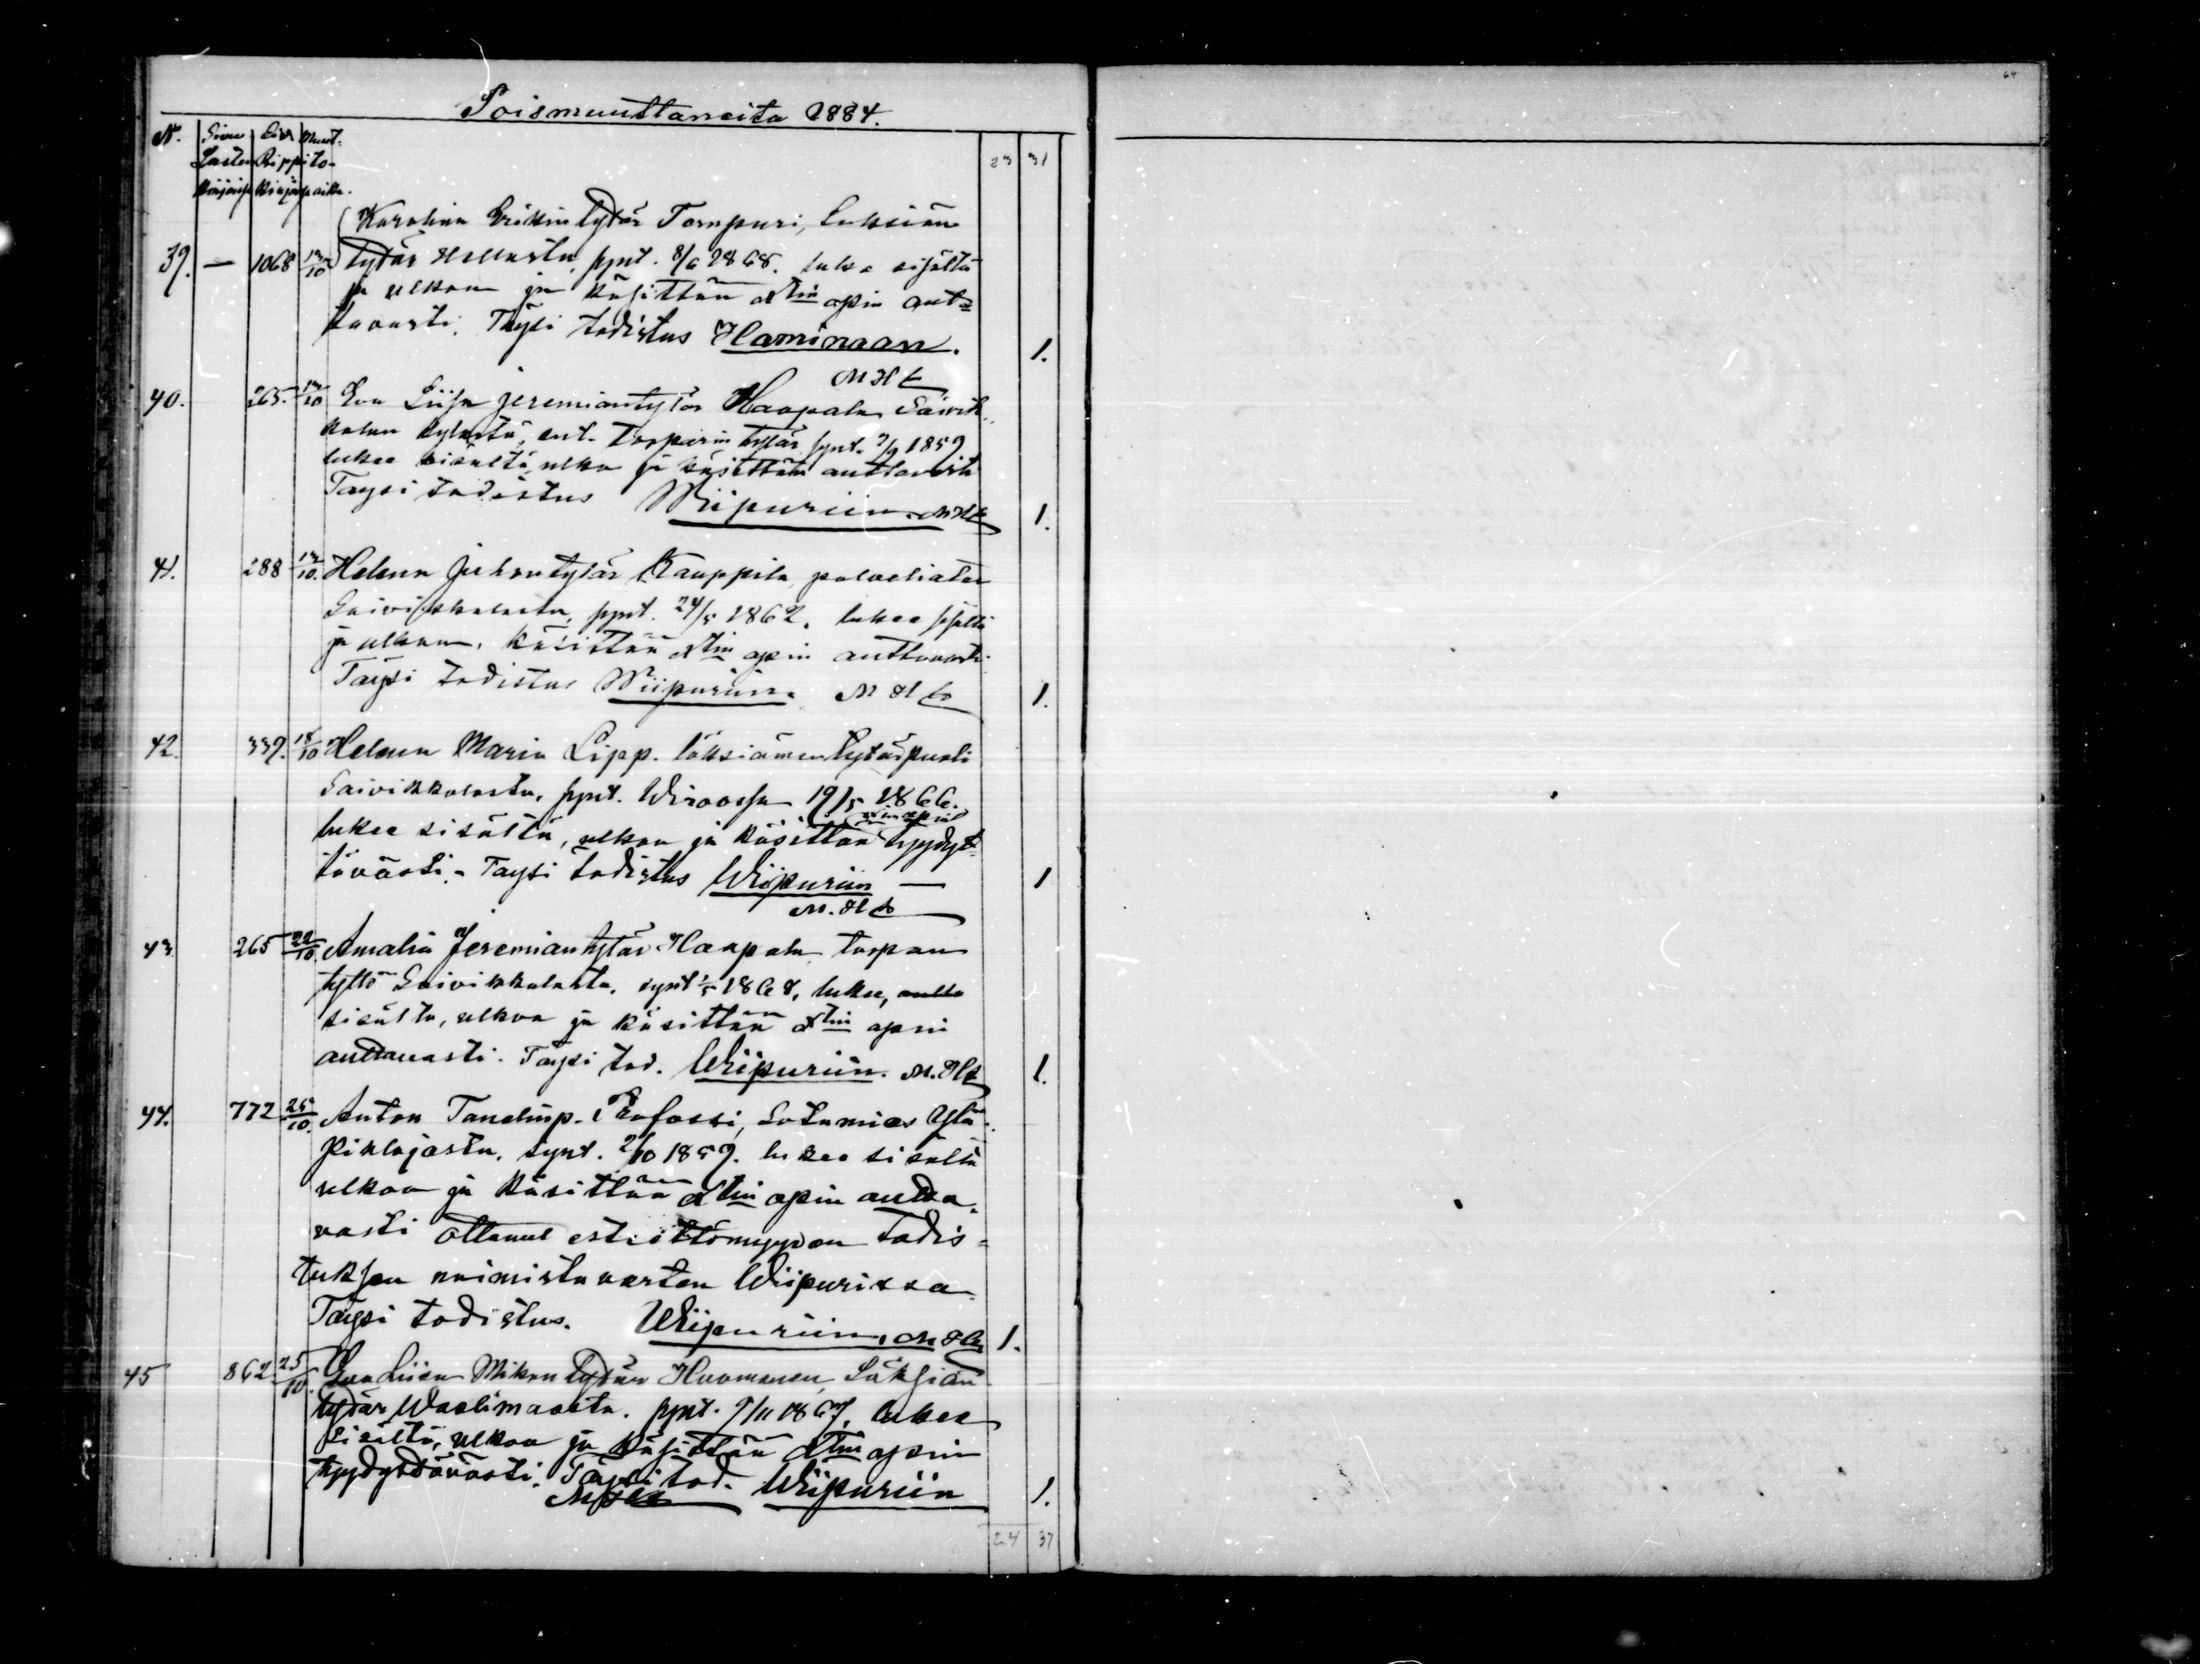 64
Poismuuttaneita 1884.
N. Sivu Sivu Muut-
Lasten Rippi to-
Kirjassa Kirjassa paikka.
23 31
Karolina Erikin tytär Tompuri, Loksiän
39. — 1068 13/10 tytär synt. 8/6 1868. lukee sisältä
ja ulkoa ja käsittää Xtin opin aut-
tavasti. Täysi todistus Haminaan. 1.
40. 265. 13/10 Eva Liisa Jeremiantytär Haapala Saivik-
kalan kylästä, ent. Torparin tytär synt. 7/9 1859
lukee sisältä, ulkoa ja käsittää auttavasti
Täysi todistus Wiipuriin. 1.
41. 288 13/10. Helena Juhontytär Kauppila, palveliatar
Saivikkalasta, synt. 24/5 1862. lukee sisältä
ja ulkoa, käsittää Xtin opin auttavasti.
Täysi todistus Wiipuriin. 1.
42. 339. 18/10 Helena Maria Lipp. löksiämen tytärpuoli
Saivikkalasta, synt. Wiroossa 19/5 1866.
Xtin opin
lukee sisältä, ulkoa ja käsittää tyydyt-
tävästi. - Täysi todistus Wiipuriin — 1
43 265 22/10. Amalia Jeremiantytär Haapala, torpan
tyttö Saivikkalasta, synt 1/5 1868, lukee,
sisältä, ulkoa ja käsittää Xtin opin
auttavasti. Täysi tod. Wiipuriin. 1.
44. 772 25/10. Anton Profossi, Sotamies Ylä-
Pihlajasta, synt. 2/10 1859. lukee sisältä
ulkoa ja käsittää Xtin opin autta-
vasti ottanut esteettömyyden todis-
tuksen naimista varten Wiipurissa
Täysi todistus. Wiipuriin. 1.
45 862 25/10. Eva Liisa Mikontytär Huomanen, Läksiän
tytär Waalimaasta. synt. 9/11 1867. lukee
sisältä, ulkoa ja käsittää Xtin opin
tyydyttävästi. Täysi tod. Wiipuriin 1.
24 37